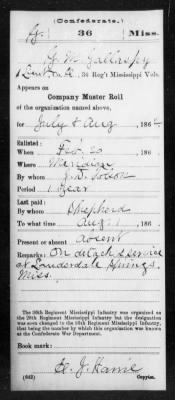 (Confederate.)
G. 36 Miss.
G. M. Gallaspy
36 Reg't Mississippi Vols.
Appears on
Company Muster Roll
of the organization named above,
for July & Aug, 1862
Enlisted:
When Feb. 20, 186
Where Meridian
By whom
Period 1 Year
Last paid:
By whom Shepherd
To what time Aug 1, 186
Present or absent Absent
Remarks: On detach'd service
at Lauderdale Springs,
Miss.
The 36th Regiment Mississippi Infantry was organized as
the 28th Regiment Mississippi Infantry but the designation
was soon changed to the 36th Regiment Mississippi Infantry,
that being the number by which this regiment was known at
the Confederate War Department.
Book mark:
(642) Copyist.